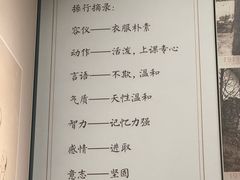 操行摘录：
容仪——衣服朴素
动作——活泼，上课专心
言语——不欺，温和
气质——天性温和
智力——记忆力强
感情——进取
意志——坚固